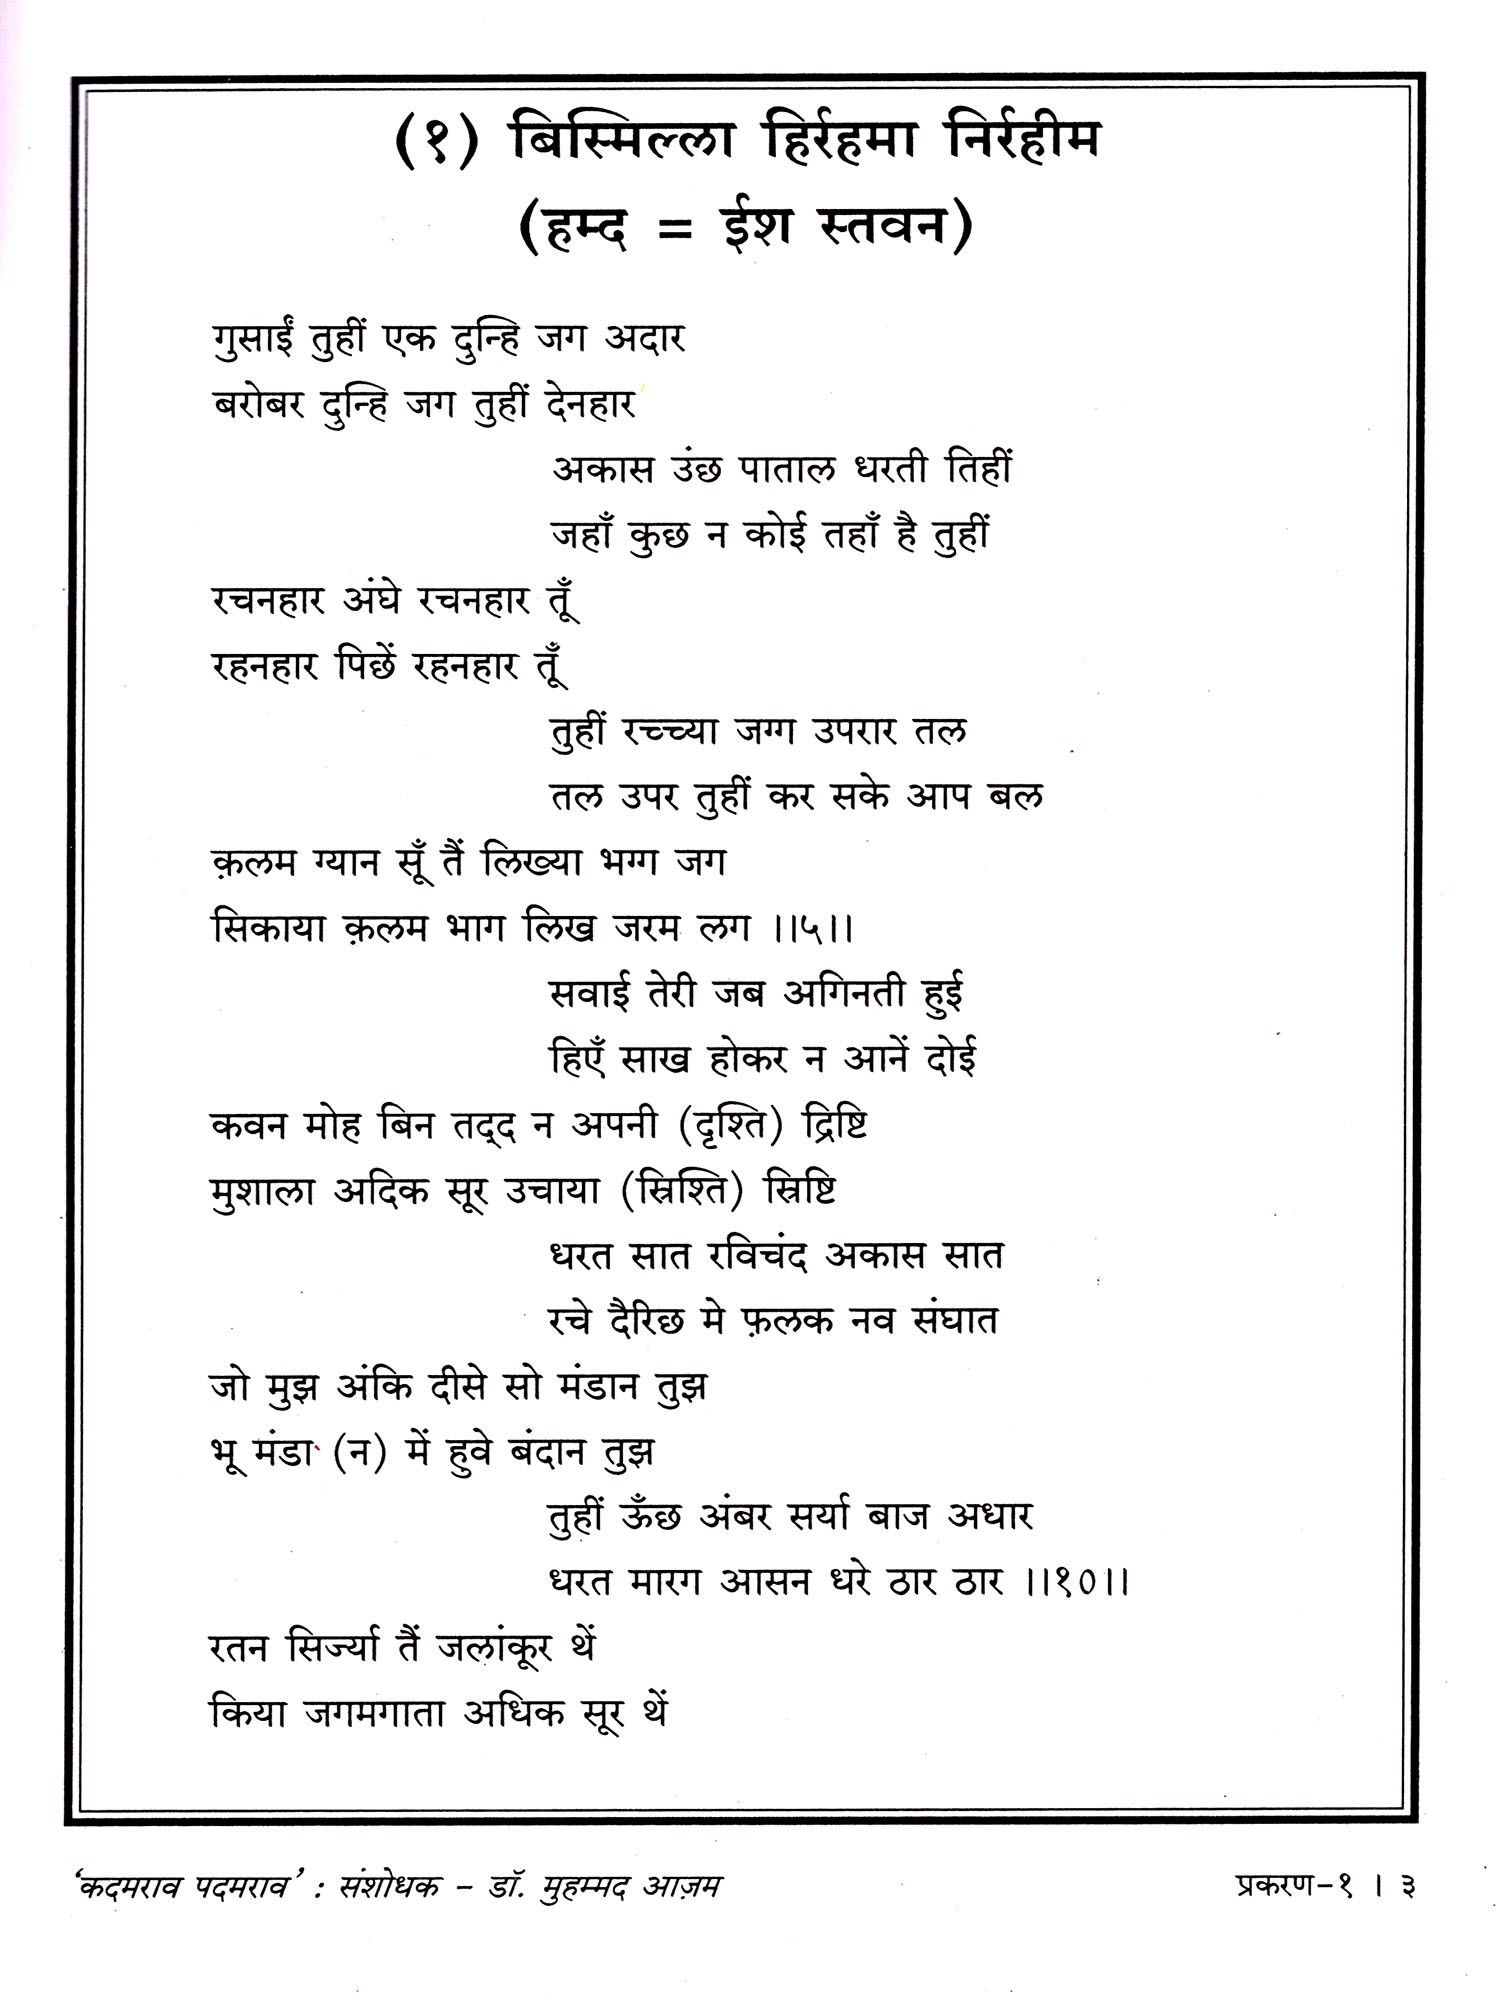 (१) बिस्मिल्ला हिर्रहमा निर्रहीम
(हम्द = ईश स्तवन)
गुसाईं तुहीं एक दुन्हि जग अदार
बरोबर दुन्हि जग तुहीं देनहार
अकास उंछ पाताल धरती तिहीं
जहाँ कुछ न कोई तहाँ है तुहीं
रचनहार अंघे रचनहार तूँ
रहनहार पिछें रहनहार तूँ
तुहीं रच्च्या जग्ग उपरार तल
तल उपर तुहीं कर सके आप बल
क़लम ग्यान सूँ तैं लिख्या भग्ग जग
सिकाया क़लम भाग लिख जरम लग ।।५।।
सवाई तेरी जब अगिनती हुई
हिएँ साख होकर न आनें दोई
कवन मोह बिन तद्द न अपनी (दृश्ति) द्रिष्टि
मुशाला अदिक सूर उचाया (स्रिश्ति) स्रिष्टि
धरत सात रविचंद अकास सात
रचे दैरिछ मे फ़लक नव संघात
जो मुझ अंकि दीसे सो मंडान तुझ
भू मंडा (न) में हुवे बंदान तुझ
तुहीं ऊँछ अंबर सर्या बाज अधार
धरत मारग आसन धरे ठार ठार ।।१०।।
रतन सिर्ज्या तैं जलांकूर थें
किया जगमगाता अधिक सूर थें
‘कदमराव पदमराव’ : संशोधक - डॉ. मुहम्मद आज़म
प्रकरण-१ । ३